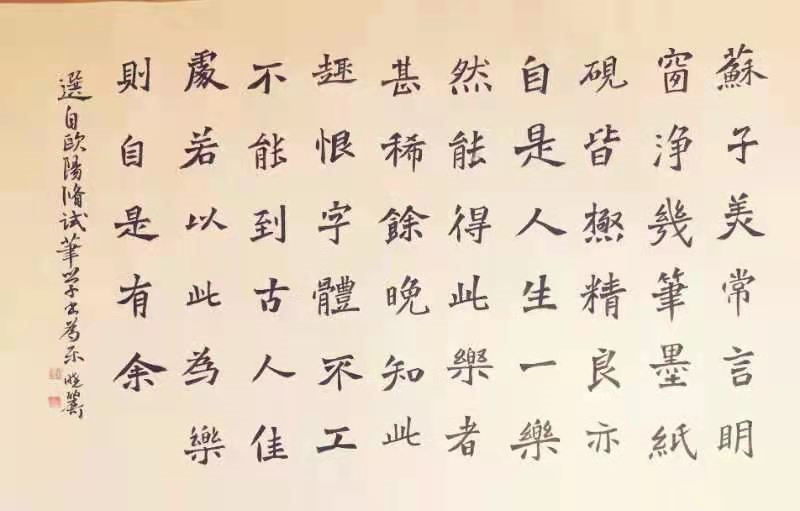 蘇子美常言明
窗浄幾筆墨紙
硯皆極精良亦
自是人生一樂
然能得此樂者
甚稀餘晚知此
趣恨字體不工
不能到古人佳
處若以此為樂
則自是有余
選自歐陽脩試筆学书为乐